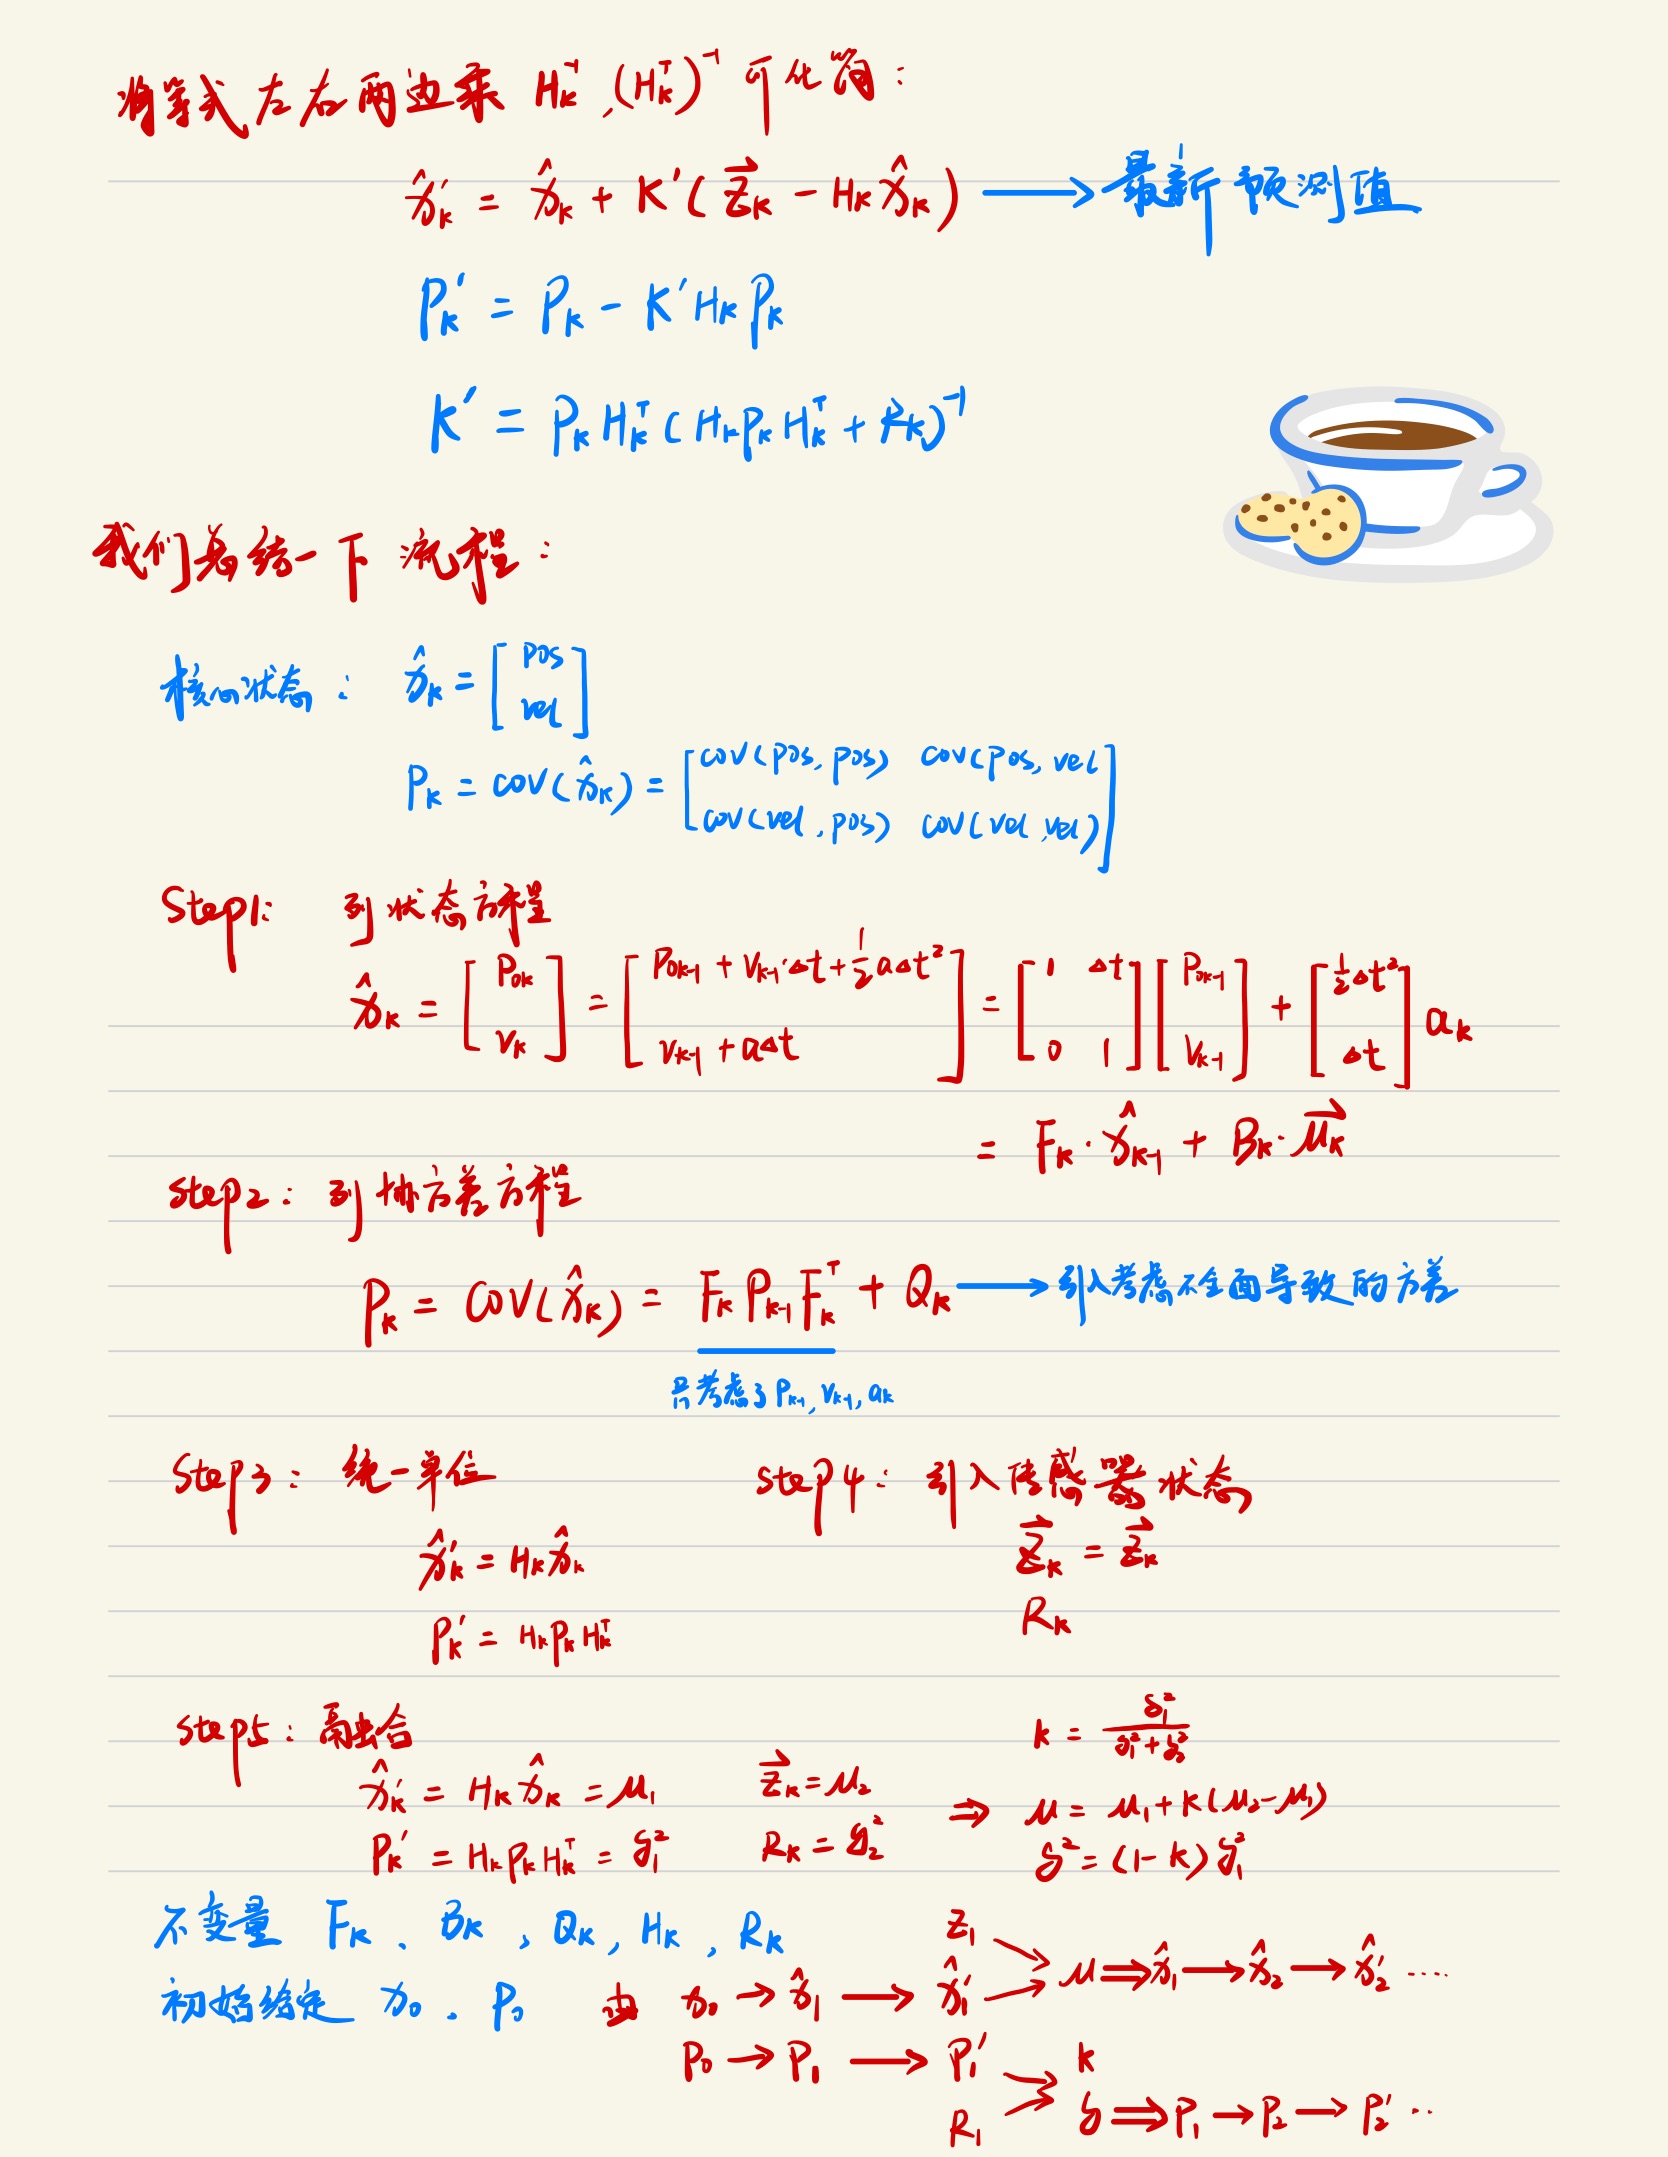 将等式左右两边乘 Hₖ⁻¹, (Hₖᵀ)⁻¹ 可化简：
x̂ₖ′ = x̂ₖ + K′( z⃗ₖ − Hₖ x̂ₖ ) ⟶ 最新预测值
Pₖ′ = Pₖ − K′HₖPₖ
K′ = PₖHₖᵀ(HₖPₖHₖᵀ + Rₖ)⁻¹
我们总结一下流程：
核心状态： x̂ₖ = [ pos
vel ]
Pₖ = cov(x̂ₖ) = [ cov(pos, pos) cov(pos, vel
cov(vel, pos) cov(vel, vel) ]
Step1: 列状态方程
x̂ₖ = [ P₀ₖ ; Vₖ ] = [ P₀ₖ₋₁ + Vₖ₋₁·Δt + ½aΔt² ; Vₖ₋₁ + aΔt ] = [ 1 Δt ; 0 1 ] [ P₀ₖ₋₁ ; Vₖ₋₁ ] + [ ½Δt² ; Δt ] aₖ
= Fₖ · x̂ₖ₋₁ + Bₖ · μ⃗ₖ
Step2: 列协方差方程
Pₖ = cov(x̂ₖ) = FₖPₖ₋₁Fₖᵀ + Qₖ ⟶ 引入考虑不全面导致的方差
只考虑了 Pₖ₋₁, Vₖ₋₁, aₖ
Step3: 统一单位
x̂ₖ′ = Hₖx̂ₖ
Pₖ′ = HₖPₖHₖᵀ
Step4: 引入传感器状态
z⃗ₖ = z⃗ₖ
Rₖ
Step5: 融合
x̂ₖ′ = Hₖx̂ₖ = μ₁ z⃗ₖ = μ₂
Pₖ′ = HₖPₖHₖᵀ = δ₁² Rₖ = δ₂²
⇒ k = δ₁² / (δ₁² + δ₂²)
μ = μ₁ + k(μ₂ − μ₁)
δ² = (1 − k)δ₁²
不变量 Fₖ、Bₖ, Qₖ, Hₖ, Rₖ
初始给定 x₀ . P₀
z₁
由 x₀ → x̂₁ ⟶ x̂₁′ → μ ⇒ x̂₁ → x̂₂ → x̂₂′ ····
P₀ → P₁ ⟶ P₁′ → k
R₁ → δ ⇒ P₁ → P₂ → P₂′ ··